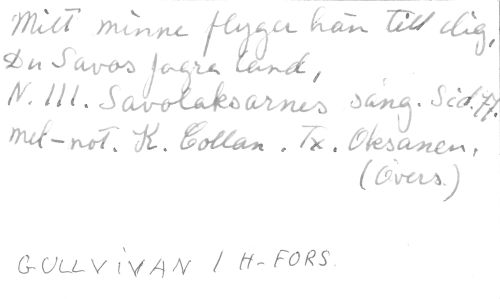 Mitt minne flyger hän till dig,
Du Savos fagra land,
N. III. Savolaksarnes sång. Sid. 77.
mel-not. K. Collan. Tx. Oksanen.
(Övers.)
GULLVIVAN / H-FORS.